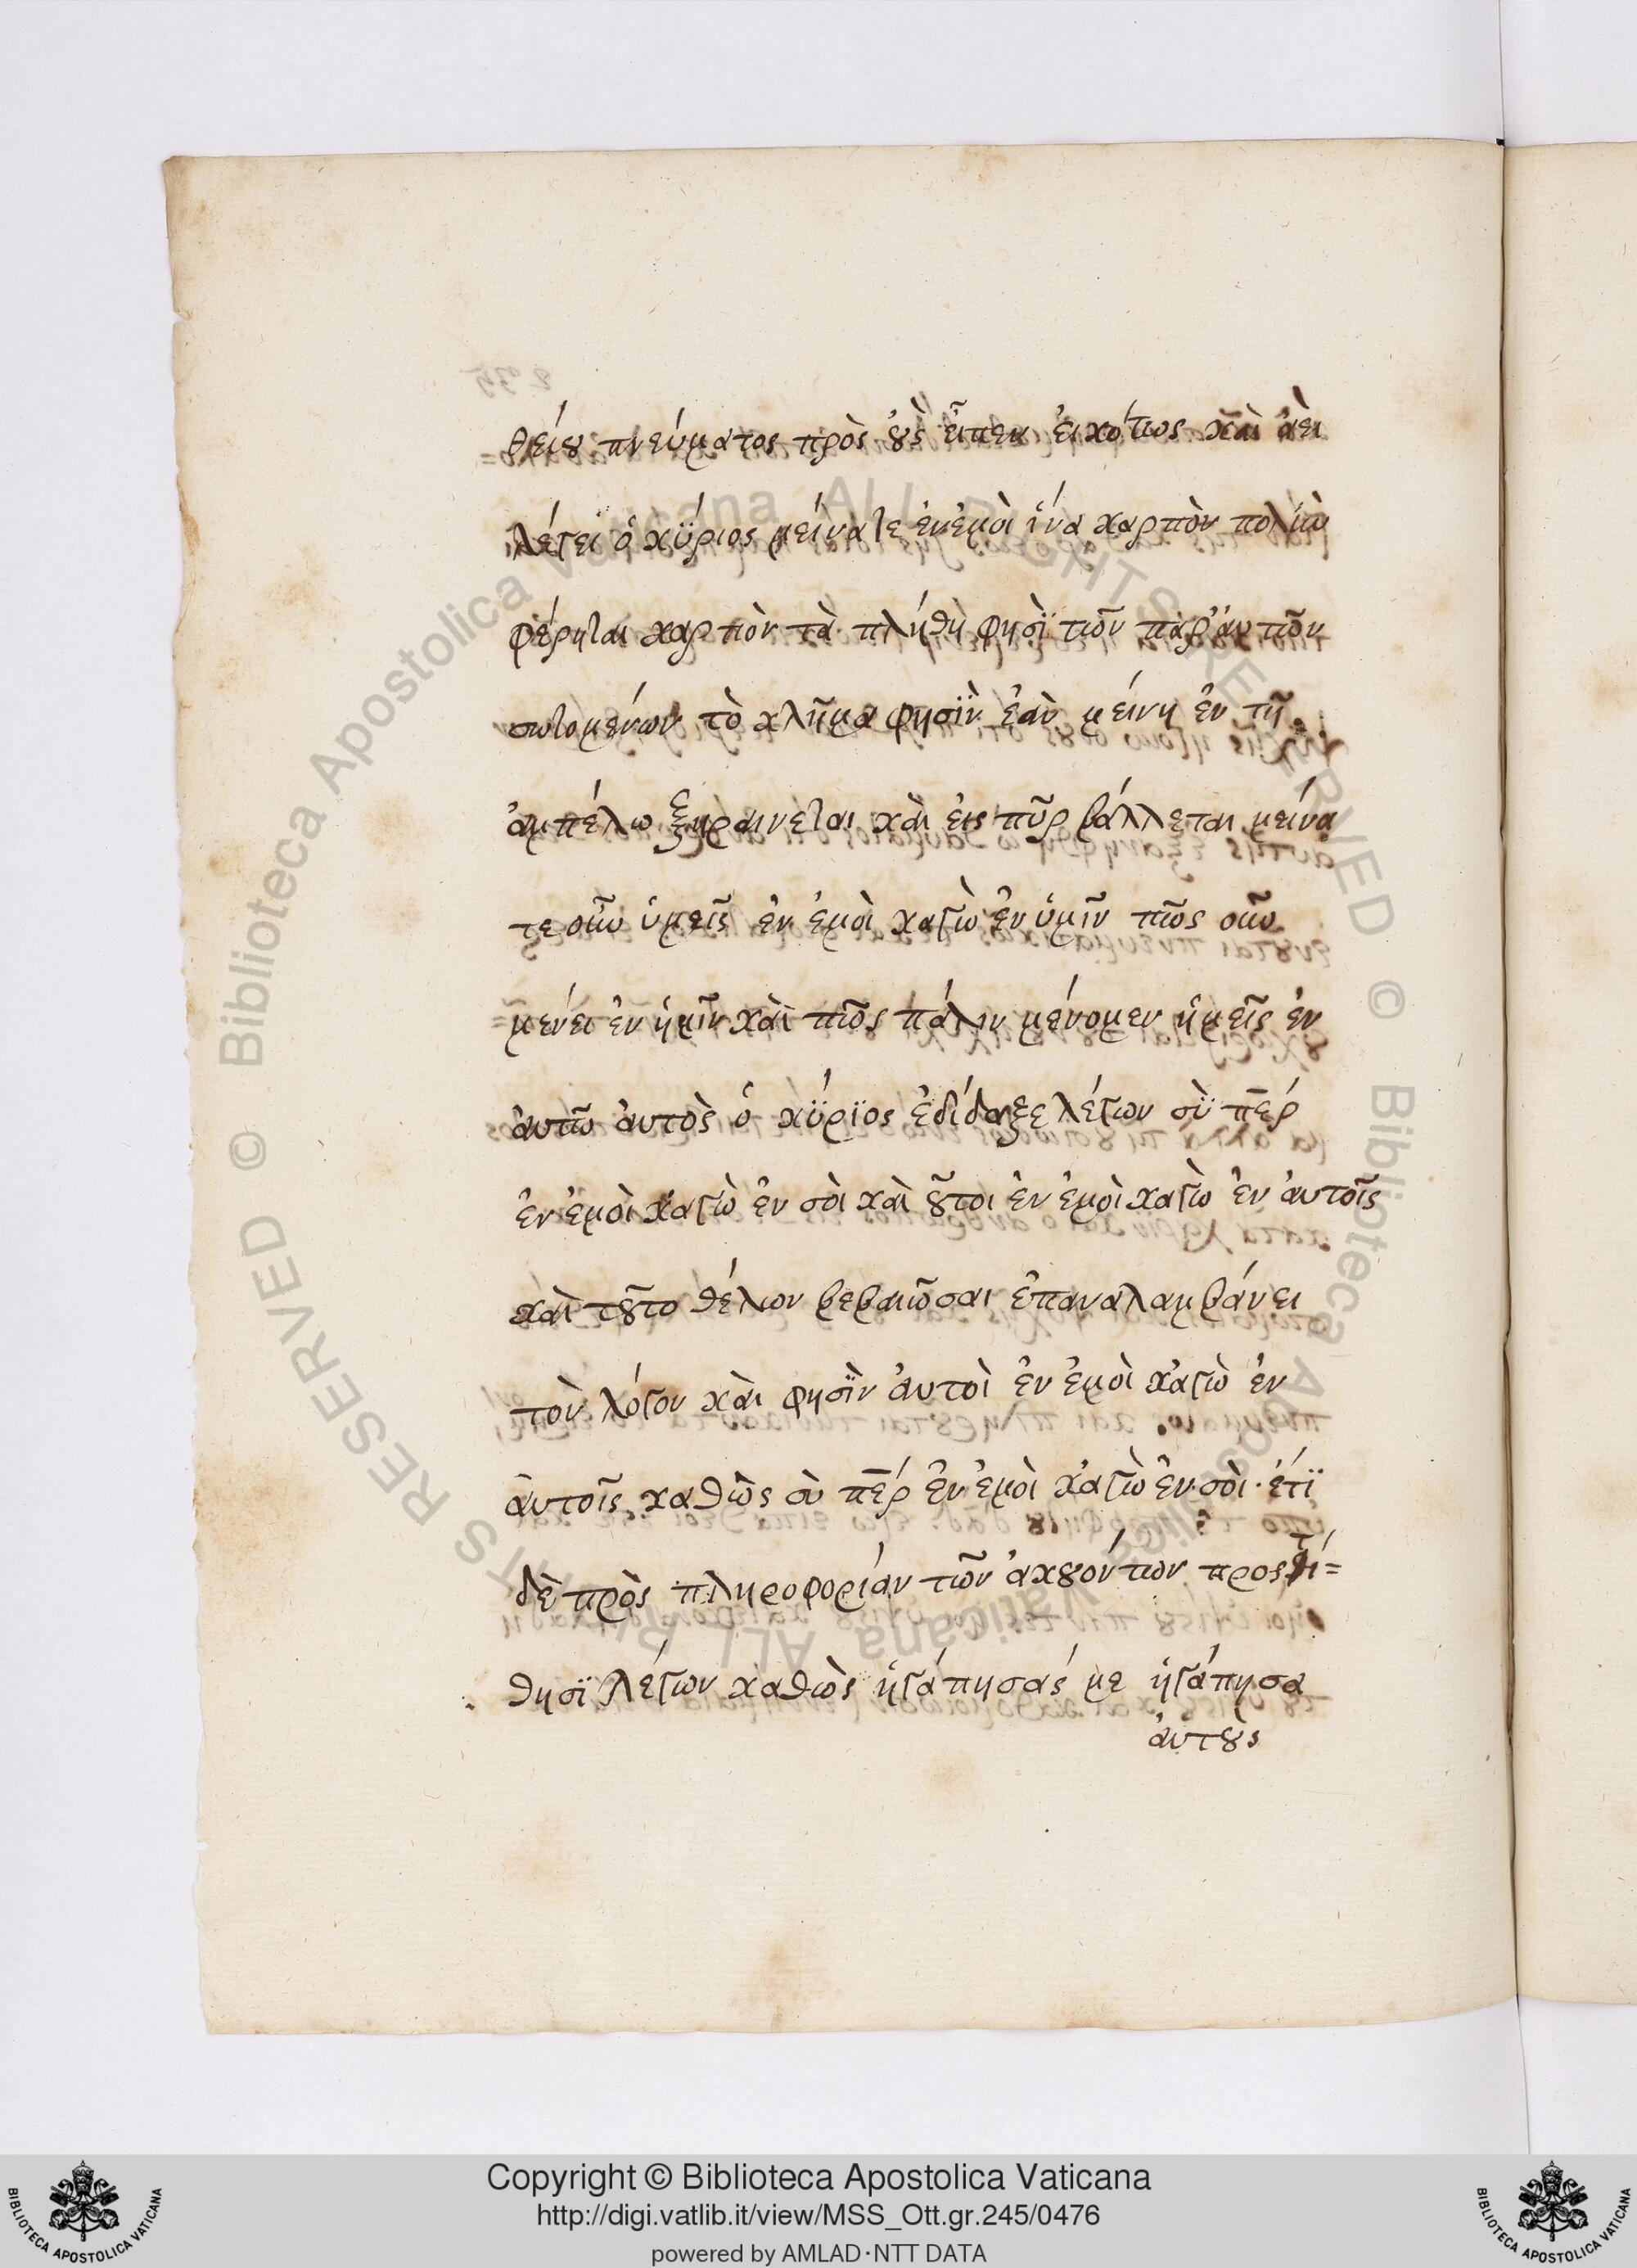 θείου πνεύματος πρὸς οὓς εἶπεν εἰκότως καὶ ἀεὶ
λέγει ὁ κύριος μείνατε ἐν ἐμοὶ ἵνα καρπὸν πολὺν
φέρηται καρπὸν τὰ πλήθη φησὶ τῶν παρ' αὐτῶν
σωζομένων τὸ κλῆμα φησὶν ἐὰν μείνη ἐν τῆ
ἀμπέλω ξηραινεται καὶ εἰς πῦρ βάλλεται μείνα
τε οὖν ὑμεῖς ἐν ἐμοὶ καγὼ ἐν ὑμῖν πῶς οὖν
μένει ἐν ἡμῖν καὶ πῶς πάλιν μένομεν ἡμεῖς ἐν
αὐτῶ αὐτὸς ὁ κύριος ἐδίδαξε λέγων σὺ περ
ἐν ἐμοὶ καγὼ ἐν σοὶ καὶ οὗτοι ἐν ἐμοὶ καγὼ ἐν αὐτοῖς
καὶ τοῦτο θέλων βεβαιῶσαι ἐπαναλαμβάνει
τὸν λόγον καὶ φησὶν αὐτοὶ ἐν ἐμοὶ κἀγὼ ἐν
αὐτοῖς καθὼς σὺ πέρ ἐν ἐμοὶ κἀγὼ ἐν σοὶ · ἔτι
δὲ πρὸς πληροφορίαν τῶν ἀκουόντων προστί=
θησι λέγων καθὼς ἠγάπησάς με ἠγάπησα
αὐτοὺς
Copyright © Biblioteca Apostolica Vaticana
http://digi.vatlib.it/view/MSS_Ott.gr.245/0476
powered by AMLAD·NTT DATA
BIBLIOTECA APOSTOLICA VATICANA
BIBLIOTECA APOSTOLICA VATICANA